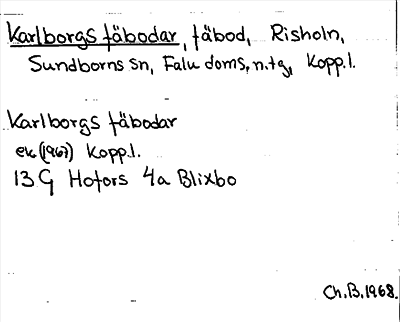 Karlborgs fäbodar, fäbod, Risholn,
Sundborns sn, Falu doms. n. tg, Kopp. l.
Karlborgs fäbodar
ek (1967) Kopp. l.
13 G Hofors 4a Blixbo
Ch. B. 1968.